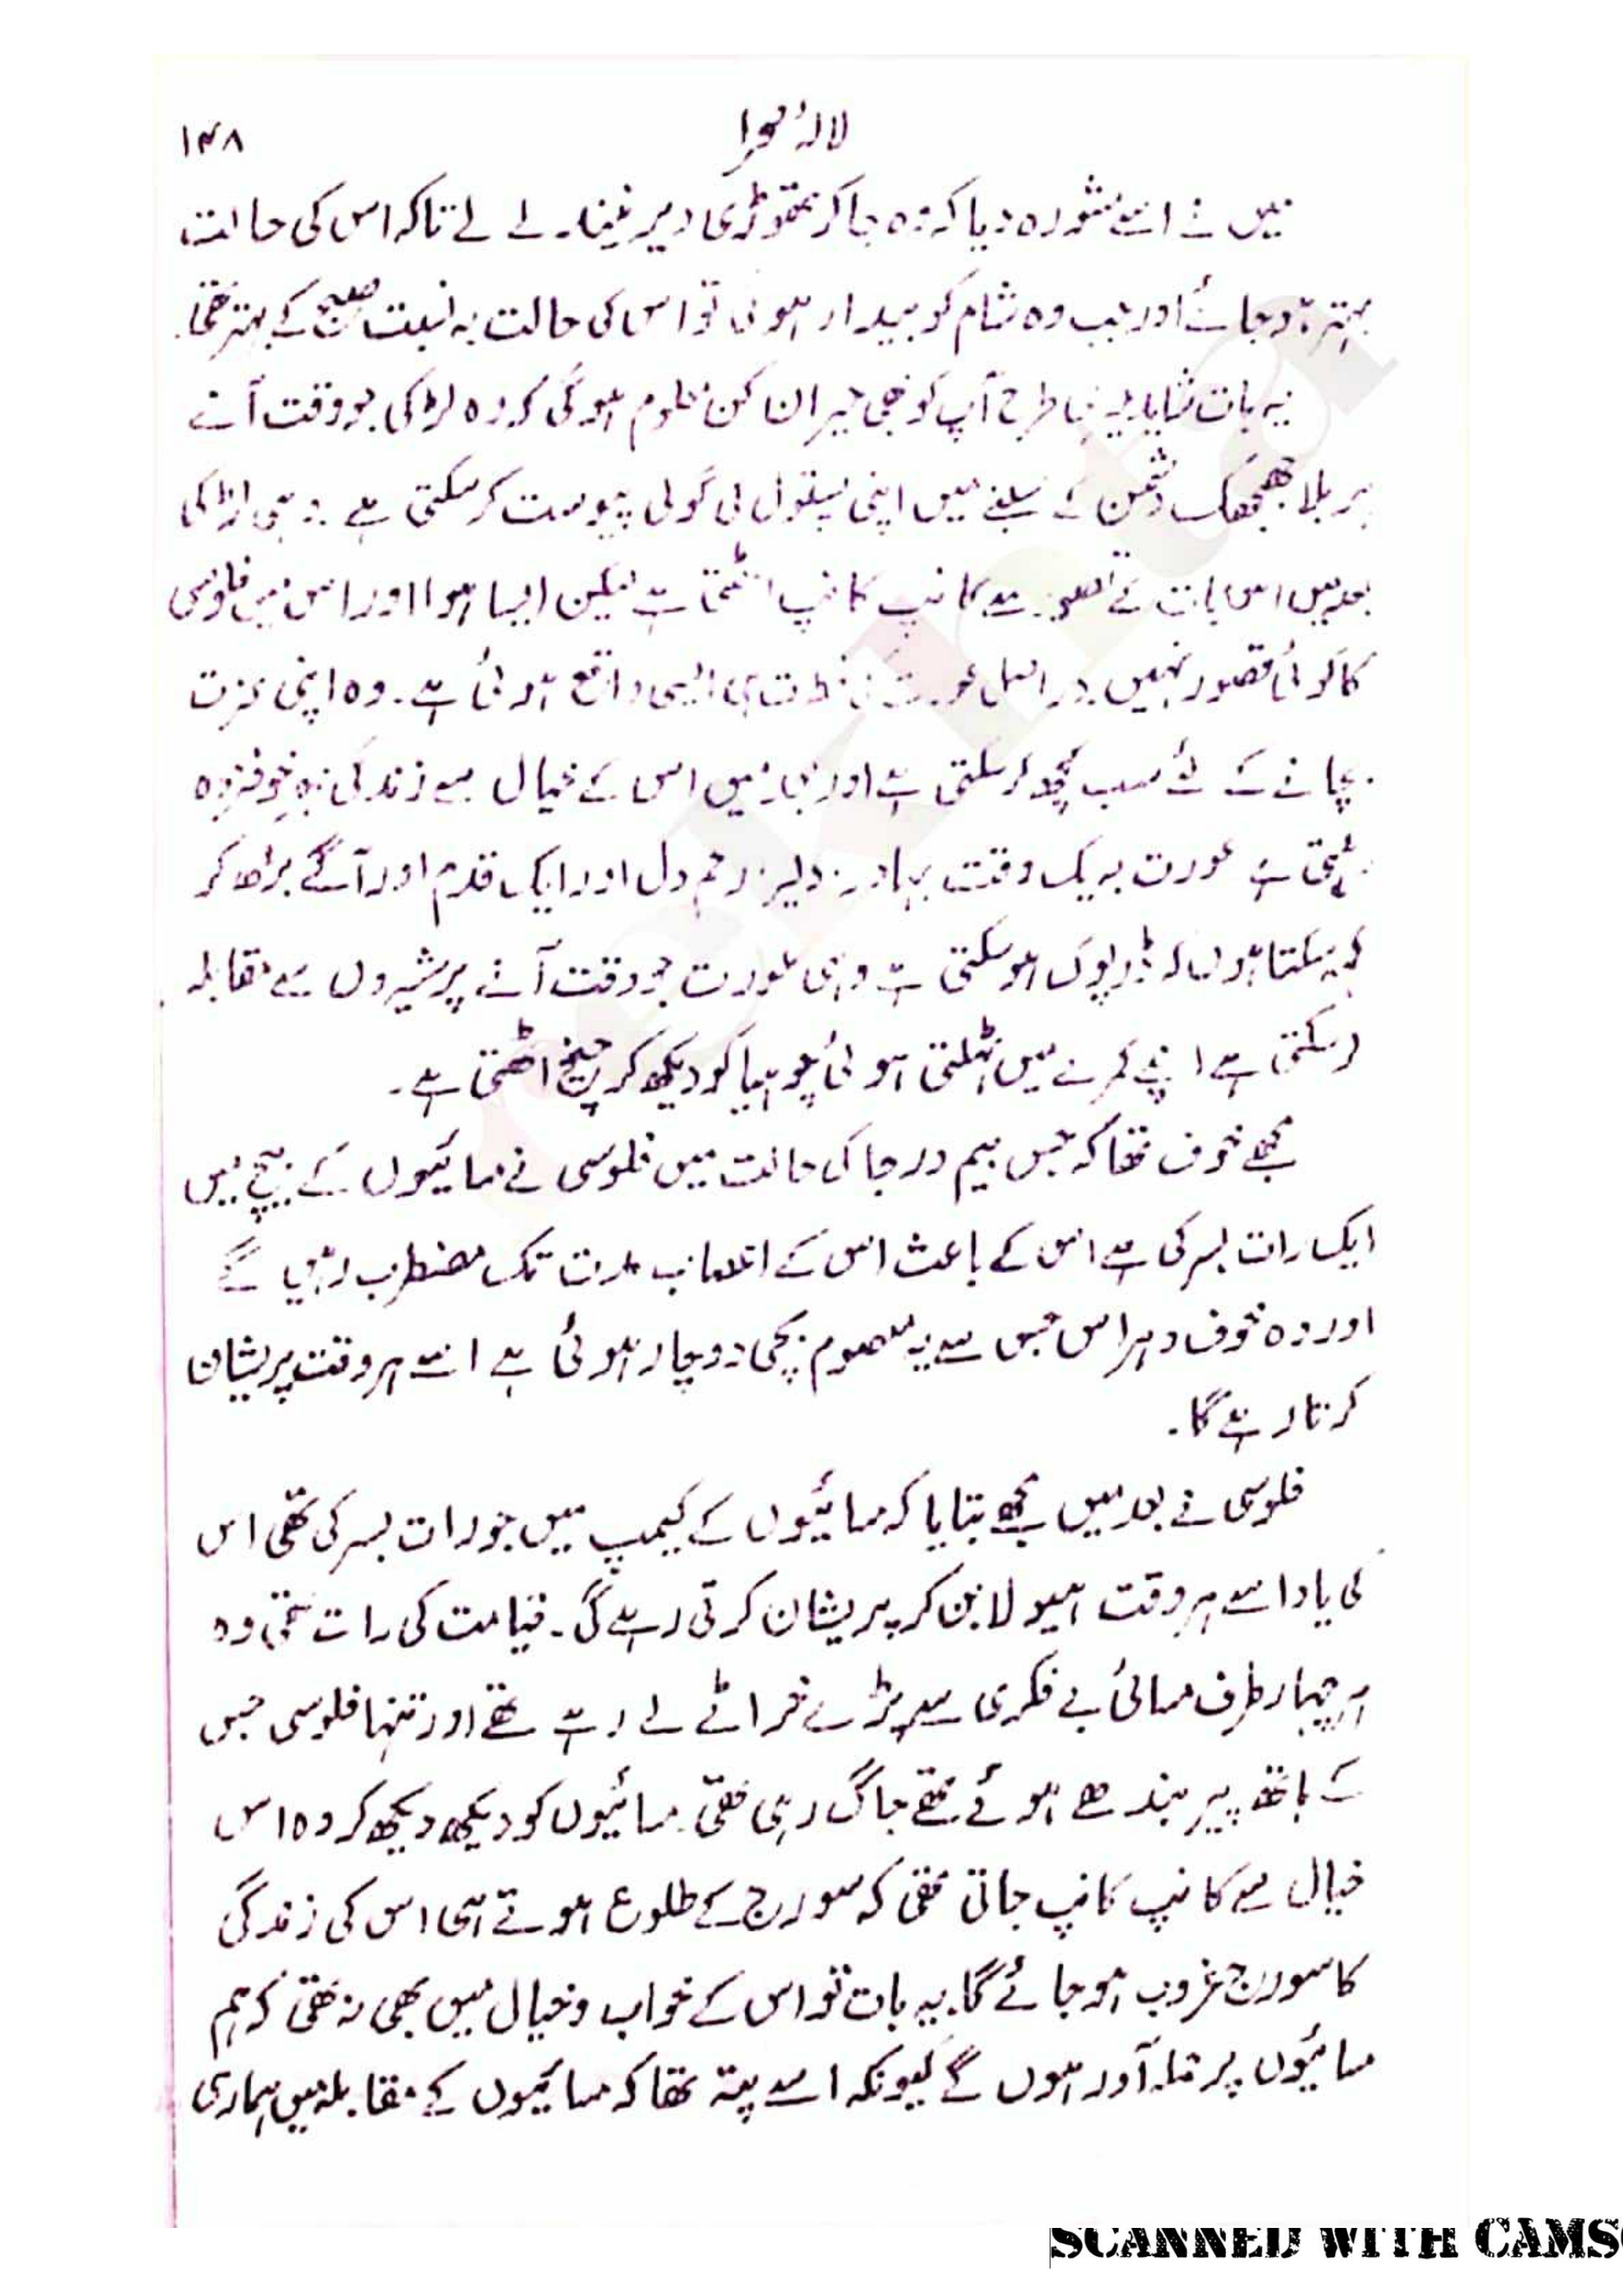 لالۂ صحرا
۱۴۸
میں نے اسے مشورہ دیا کہ وہ جا کر تھوڑی دیر نیند لے لے تاکہ اس کی حالت
بہتر ہو جائے اور جب وہ شام کو بیدار ہوئی تو اس کی حالت بہ نسبت صبح کے بہتر تھی۔
یہ بات شاید میری طرح آپ کو بھی حیران کن معلوم ہوگی کہ وہ لڑکی جو وقت آنے
پر بلا جھجھک دشمن کے سینے میں اپنی پستول کی گولی پیوست کر سکتی ہے۔ وہی لڑکی
بعد میں اس بات کے تصور سے کانپ کانپ اٹھتی ہے لیکن ایسا ہوا اور اس میں فلوسی
کا کوئی قصور نہیں۔ دراصل عورت کی فطرت ہی ایسی واقع ہوئی ہے۔ وہ اپنی عزت
بچانے کے لئے سب کچھ کر سکتی ہے اور بعد میں اس کے خیال سے زندگی بھر خوفزدہ
رہتی ہے عورت بہ یک وقت بہادر، دلیر، رحم دل اور ایک قدم اور آگے بڑھ کر
کہہ سکتا ہوں کہ ڈرپوک ہو سکتی ہے وہی عورت جو وقت آنے پر شیروں سے مقابلہ
کر سکتی ہے اپنے کمرے میں ٹہلتی ہوئی چوہیا کو دیکھ کر چیخ اٹھتی ہے۔
مجھے خوف تھا کہ جس بیم و رجا کی حالت میں فلوسی نے مسائیوں کے بیچ میں
ایک رات بسر کی ہے اس کے باعث اس کے اعصاب مدت تک مضطرب رہیں گے
اور وہ خوف و ہراس جس سے یہ معصوم بچی دوچار ہوئی ہے اسے ہر وقت پریشان
کرتا رہے گا۔
فلوسی نے بعد میں مجھے بتایا کہ مسائیوں کے کیمپ میں جو رات بسر کی تھی اس
کی یاد اسے ہر وقت ہیولا بن کر پریشان کرتی رہے گی۔ قیامت کی رات تھی وہ
ہر چہار طرف مسائی بے فکری سے پڑے خراٹے لے رہے تھے اور تنہا فلوسی جس
کے ہاتھ پیر بندھے ہوئے تھے جاگ رہی تھی۔ مسائیوں کو دیکھ دیکھ کر وہ اس
خیال سے کانپ کانپ جاتی تھی کہ سورج کے طلوع ہوتے ہی اس کی زندگی
کا سورج غروب ہو جائے گا۔ یہ بات تو اس کے خواب و خیال میں بھی نہ تھی کہ ہم
مسائیوں پر حملہ آور ہوں گے کیونکہ اسے پتہ تھا کہ مسائیوں کے مقابلہ میں ہماری
rekhta
SCANNED WITH CAMS